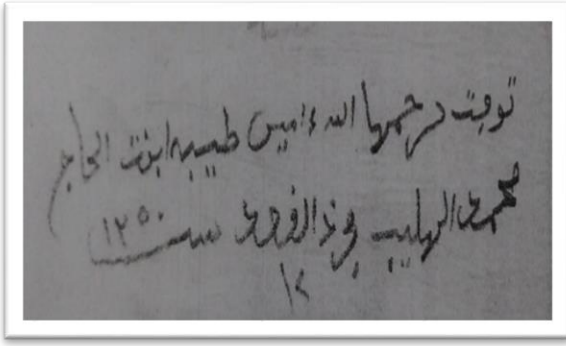 توفيت رحمها الله ءامين طيبه ابنت الحاج
محمد الهليب في ذالقعده سنة ١٢٥٠
١٢